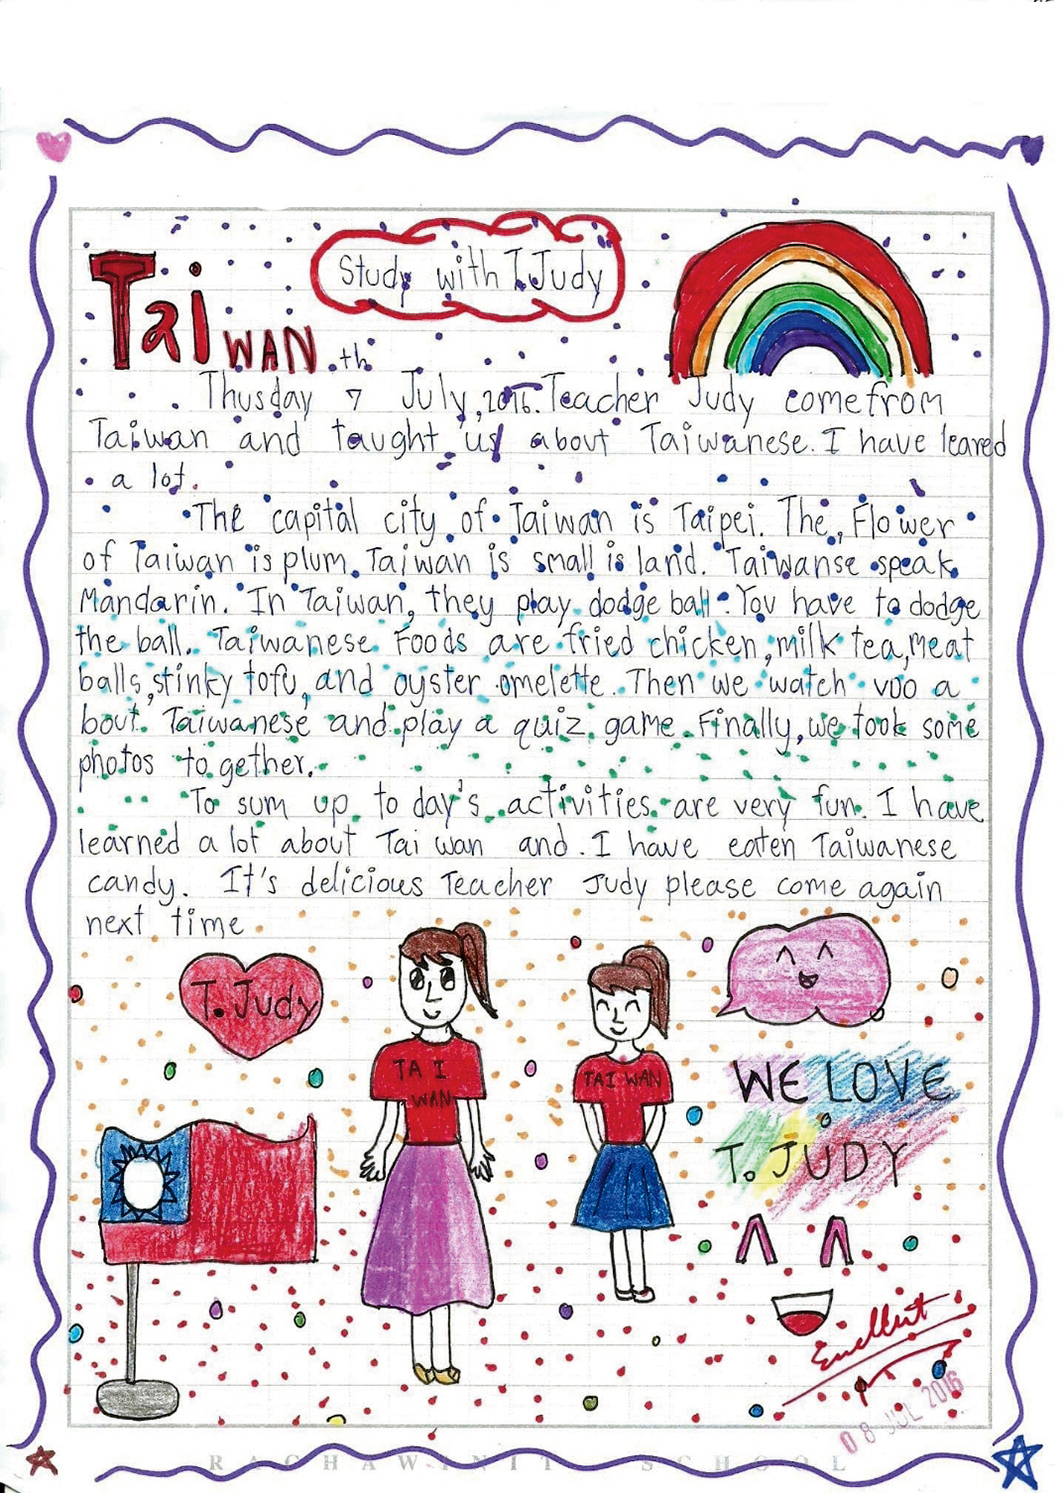 Study with T.Judy
TaiWAN
Thusday 7th July, 2016. Teacher Judy come from
Taiwan and taught us about Taiwanese. I have leared
a lot.
The capital city of Taiwan is Taipei. The Flower
of Taiwan is plum. Taiwan is small is land. Taiwanse speak
Mandarin. In Taiwan, they play dodge ball. You have to dodge
the ball. Taiwanese Foods are fried chicken, milk tea, meat
balls, stinky tofu, and oyster omelette. Then we watch vdo a
bout Taiwanese and play a quiz game. Finally, we took some
photos to gether.
To sum up to day's activities are very fun. I have
learned a lot about Tai wan and. I have eaten Taiwanese
candy. It's delicious Teacher Judy please come again
next time.
T. Judy
TA I
WAN
TAI WAN
WE LOVE
T. JUDY
Excellent
08 JUL 2016
RACHAWINIT SCHOOL